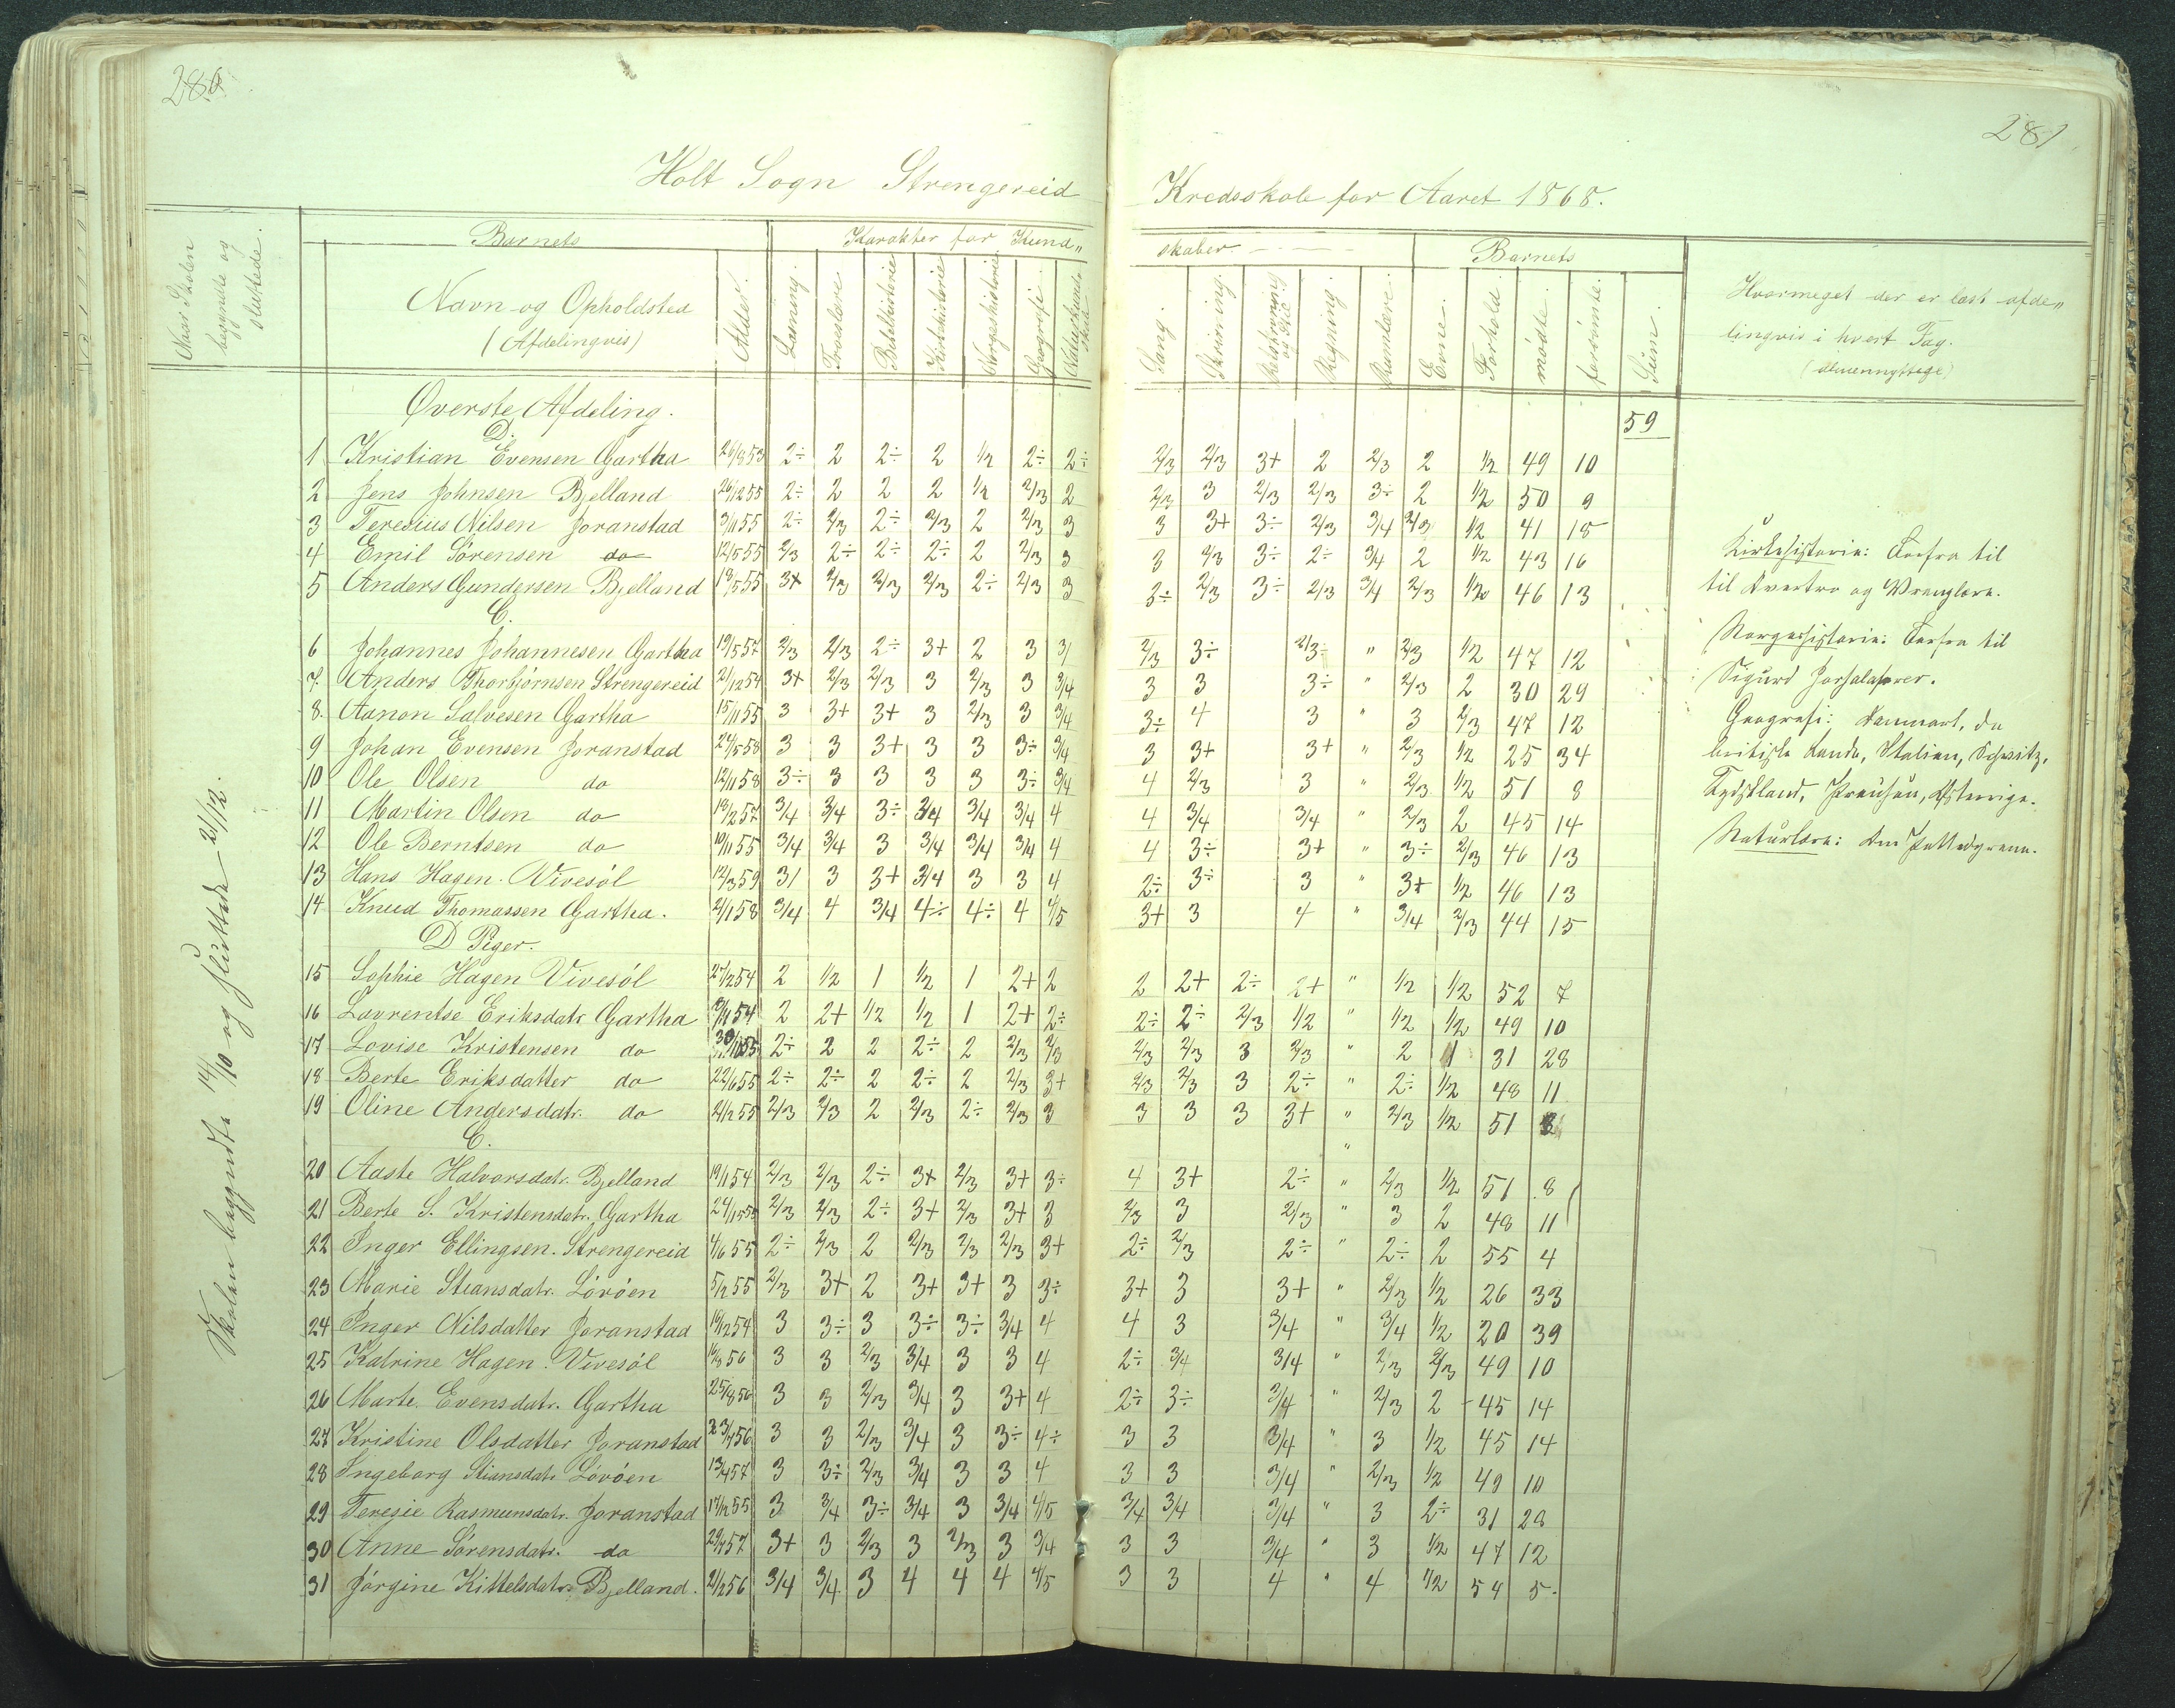 280
281
Holt Sogn Strengereid
Kredsskole for Aaret 1868.
Naar Skolen begyndte og sluttede.
Barnets
Karakter for Kund„
skaber
Barnets
Navn og Opholdsted
(Afdelingvis)
Alder.
Læsning.
Troslære
Bibelhistorie
Kirkehistorie
Norgeshistorie
Geografi.
Naturkundskab
Sang.
Skrivning.
Retskrivning og Stil
Regning.
Rumlære.
Evne.
Forhold.
mødte.
forsømte.
Sum.
Hvormeget der er læst afde„
lingvis i hvert Fag.
(almennyttige)
Skolen begyndte 14/10 og sluttede 21/12.
Øverste Afdeling.
D.
59
1 Kristian Evensen Gartha 26/8 53 2÷ 2 2÷ 2 1/2 2÷ 2÷ 2/3 2/3 3+ 2 2/3 2 1/2 49 10
2 Jens Johnsen Bjelland 26/12 55 2÷ 2 2 2 1/2 2/3 2 2/3 3 2/3 2/3 3÷ 2 1/2 50 9
3 Teresius Nilsen Joranstad 3/11 55 2÷ 2/3 2÷ 2/3 2 2/3 3 3 3+ 3÷ 2/3 3/4 2/3 1/2 41 18
4 Emil Sørensen do 12/5 55 2/3 2÷ 2÷ 2÷ 2 2/3 3 3 2/3 3÷ 2÷ 3/4 2 1/2 43 16
5 Anders Gundersen Bjelland 18/5 55 3+ 2/3 2/3 2/3 2÷ 2/3 3 3÷ 2/3 3÷ 2/3 3/4 2/3 1/2 46 13
C.
6 Johannes Johannesen Gartha 19/5 57 2/3 2/3 2÷ 3+ 2 3 3/ 2/3 3÷ 2/3÷ " 2/3 1/2 47 12
7. Anders Thorbjørnsen Strengereid 21/12 54 3+ 2/3 2/3 3 2/3 3 3/4 3 3 3÷ " 2/3 2 30 29
8. Aanon Salvesen Gartha 15/11 55 3 3+ 3+ 3 2/3 3 3/4 3÷ 4 3 " 3 2/3 47 12
9 Johan Evensen Joranstad 24/5 58 3 3 3+ 3 3 3÷ 3/4 3 3+ 3+ " 2/3 1/2 25 34
10 Ole Olsen do 12/11 58 3÷ 3 3 3 3 3÷ 3/4 4 2/3 3 " 2/3 1/2 51 8
11 Martin Olsen do 18/2 57 3/4 3/4 3÷ 3/4 3/4 3/4 4 4 3/4 3/4 " 2/3 2 45 14
12 Ole Berntsen do 10/11 55 3/4 3/4 3 3/4 3/4 3/4 4 4 3÷ 3+ " 3÷ 2/3 46 13
13 Hans Hagen. Vivesøl 12/3 59 3/ 3 3+ 3/4 3 3 4 2÷ 3÷ 3 " 3+ 1/2 46 13
14 Knud Thomassen Gartha. 2/1 58 3/4 4 3/4 4÷ 4÷ 4 4/5 3+ 3 4 " 3/4 2/3 44 15
D Piger.
15 Sophie Hagen Vivesøl 27/2 54 2 1/2 1 1/2 1 2+ 2 2 2+ 2÷ 2+ " 1/2 1/2 52 7
16 Lavrentse Eriksdatr Gartha 54 2 2+ 1/2 1/2 1 2+ 2÷ 2÷ 2÷ 2/3 1/2 " 1/2 1/2 49 10
17 Lovise Kristensen do 55 2÷ 2 2 2÷ 2 2/3 2/3 2/3 2/3 3 2/3 " 2 1 31 28
18 Berte Eriksdatter do 22/6 55 2÷ 2÷ 2 2÷ 2 2/3 3+ 2/3 2/3 3 2÷ " 2÷ 1/2 48 11
19 Oline Andersdatr. do 21/2 55 2/3 2/3 2 2/3 2÷ 2/3 3 3 3 3 3+ " 2/3 1/2 51 8
C. "
20 Aaste Halvorsdatr. Bjelland 19/1 54 2/3 2/3 2÷ 3+ 2/3 3+ 3÷ 4 3+ 2÷ " 2/3 1/2 51 8
21 Berte S. Kristensdatr. Gartha 2/3 2/3 2÷ 3+ 2/3 3+ 3 2/3 3 2/3 " 3 2 48 11
22 Inger Ellingsen. Strengereid 4/6 55 2÷ 2/3 2 2/3 2/3 2/3 3+ 2÷ 2/3 2÷ " 2÷ 2 55 4
23 Marie Stiansdatr. Løvøen 5/12 55 2/3 3+ 2 3+ 3+ 3 3÷ 3+ 3 3+ " 2/3 1/2 26 33
24 Inger Nilsdatter Joranstad 18/2 54 3 3÷ 3 3÷ 3÷ 3/4 4 4 3 3/4 " 3/4 1/2 20 39
25 Katrine Hagen. Vivesøl 56 3 3 2/3 3/4 3 3 4 2÷ 3/4 3/4 " 2/3 2/3 49 10
26 Marte Evensdatr. Gartha 25/8 56 3 3 2/3 3/4 3 3+ 4 2÷ 3÷ 3/4 " 2/3 2 45 14
27 Kristine Olsdatter Joranstad 56 3 3 2/3 3/4 3 3÷ 4÷ 3 3 3/4 " 3 1/2 45 14
28 Ingeborg Stiansdatr Løvøen 13/4 57 3 3÷ 2/3 3/4 3 3 4 3 3 3/4 " 2/3 1/2 49 10
29 Teresie Rasmunsdatr. Joranstad 17/12 55 3 3/4 3÷ 3/4 3 3/4 4/5 3/4 3/4 3/4 " 3 2÷ 31 28
30 Anne Sørensdatr. do 57 3+ 3 2/3 3 2/3 3 3/4 3 3 3/4 " 3 1/2 47 12
31 Jørgine Kittelsdatr. Bjelland. 21/2 56 3/4 3/4 3 4 4 4 4/5 3 3 4 " 4 1/2 54 5.
Kirkehistorie: Forfra til
til Overtro og Vranglære.
Norgeshistorie: Forfra til
Sigurd Jorsalafarer.
Geografi: Danmark, de
britiske Lande, Italien, Schweitz,
Tydskland, Preusen, Østerrige.
Naturlære: Om Pattedyrene.